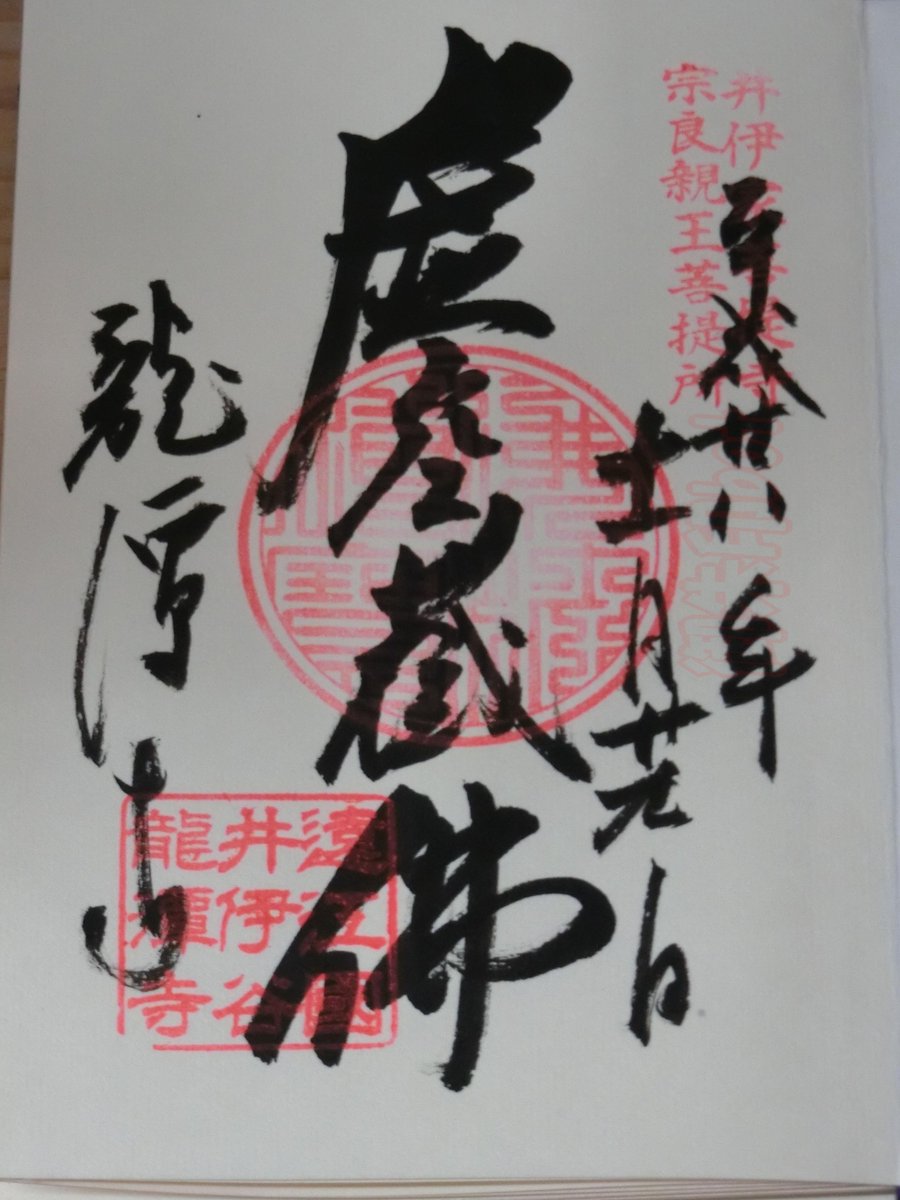 井伊
宗良親王菩提所
平成廿八年
十一月廿九日
虚空蔵佛
龍潭寺
遠江國
井伊谷
龍潭寺